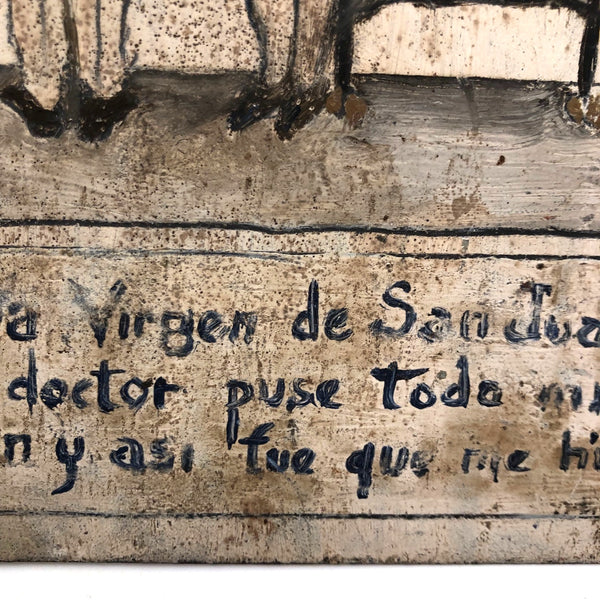 Virgen de San Jua
doctor puse todo
n y asi fue que me hi